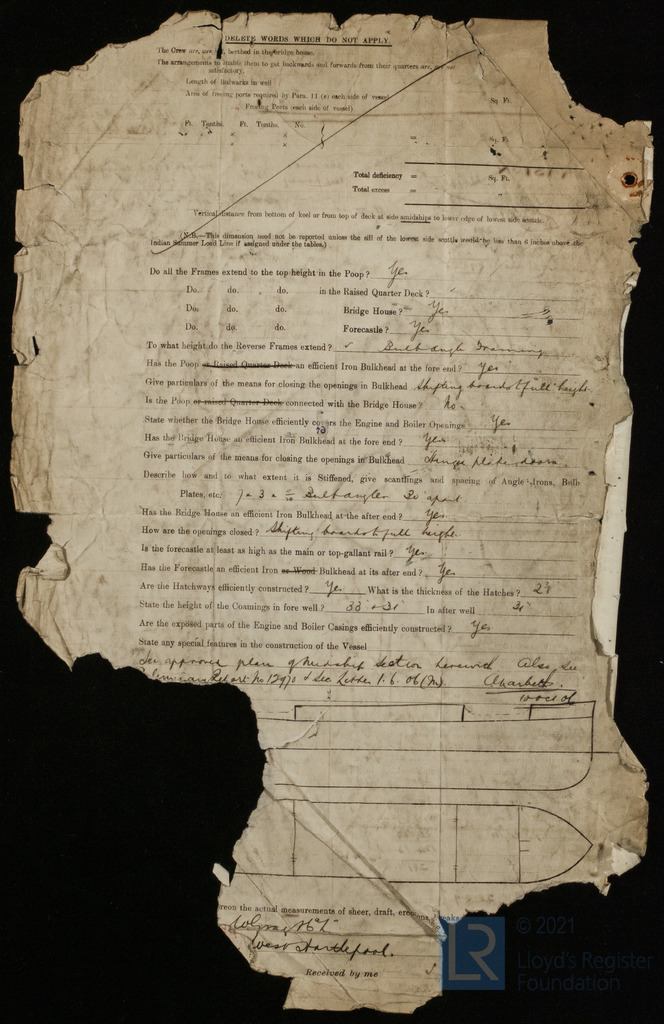 DELETE WORDS WHICH DO NOT APPLY.
The Crew are, are not, berthed in the bridge house.
The arrangements to enable them to get backwards and forwards from their quarters are, are not
satisfactory.
Length of Bulwarks in well
Area of freeing ports required by Para. 11 (e) each side of vessel Sq. Ft.
Freeing Ports (each side of vessel)
Ft. Tenths. Ft. Tenths. No.
x x = Sq. Ft.
x x = "
Total deficiency = Sq. Ft.
Total excess = "
Vertical distance from bottom of keel or from top of deck at side amidships to lower edge of lowest side scuttle.
(N.B.—This dimension need not be reported unless the sill of the lowest side scuttle would be less than 6 inches above the
Indian Summer Load Line if assigned under the tables.)
Do all the Frames extend to the top height in the Poop? Yes
Do. do. do. in the Raised Quarter Deck?
Do. do. do. Bridge House? Yes
Do. do. do. Forecastle? Yes
To what height do the Reverse Frames extend? Bulb angle Framing
Has the Poop or Raised Quarter Deck an efficient Iron Bulkhead at the fore end? Yes
Give particulars of the means for closing the openings in Bulkhead Shifting boards to full height.
Is the Poop or raised Quarter Deck connected with the Bridge House? No.
State whether the Bridge House efficiently covers the Engine and Boiler Openings Yes
Has the Bridge House an efficient Iron Bulkhead at the fore end? Yes
Give particulars of the means for closing the openings in Bulkhead Hinged plate doors.
Describe how and to what extent it is Stiffened, give scantlings and spacing of Angle Irons, Bulb
Plates, etc. 7 x 3 x Bulb angles 30" apart
Has the Bridge House an efficient Iron Bulkhead at the after end? Yes.
How are the openings closed? Shifting boards to full height.
Is the forecastle at least as high as the main or top-gallant rail? Yes.
Has the Forecastle an efficient Iron or Wood Bulkhead at its after end? Yes
Are the Hatchways efficiently constructed? Yes What is the thickness of the Hatches? 2½
State the height of the Coamings in fore well? 33" + 31" In after well 31"
Are the exposed parts of the Engine and Boiler Casings efficiently constructed? Yes
State any special features in the construction of the Vessel
See approved plan of Midship Section herewith Also see
Report No 12970 & Sec Letter 1.6.06 (M).
10 Oct 06
ereon the actual measurements of sheer, draft, erections, breaks
West Hartlepool.
Received by me
LR
© 2021
Lloyd's Register
Foundation